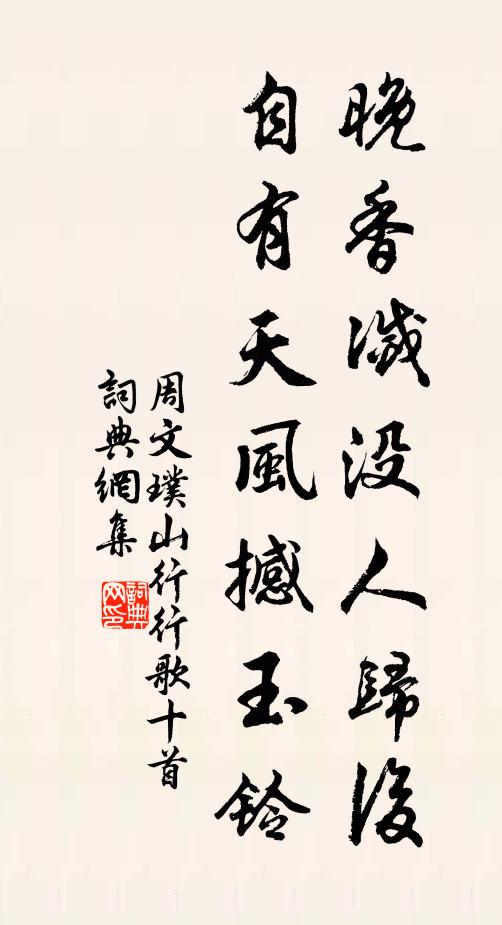 晚香滅没人歸後
自有天風撼玉鈴
周文璞山行行歌十首
詞典網集
詞典
网印